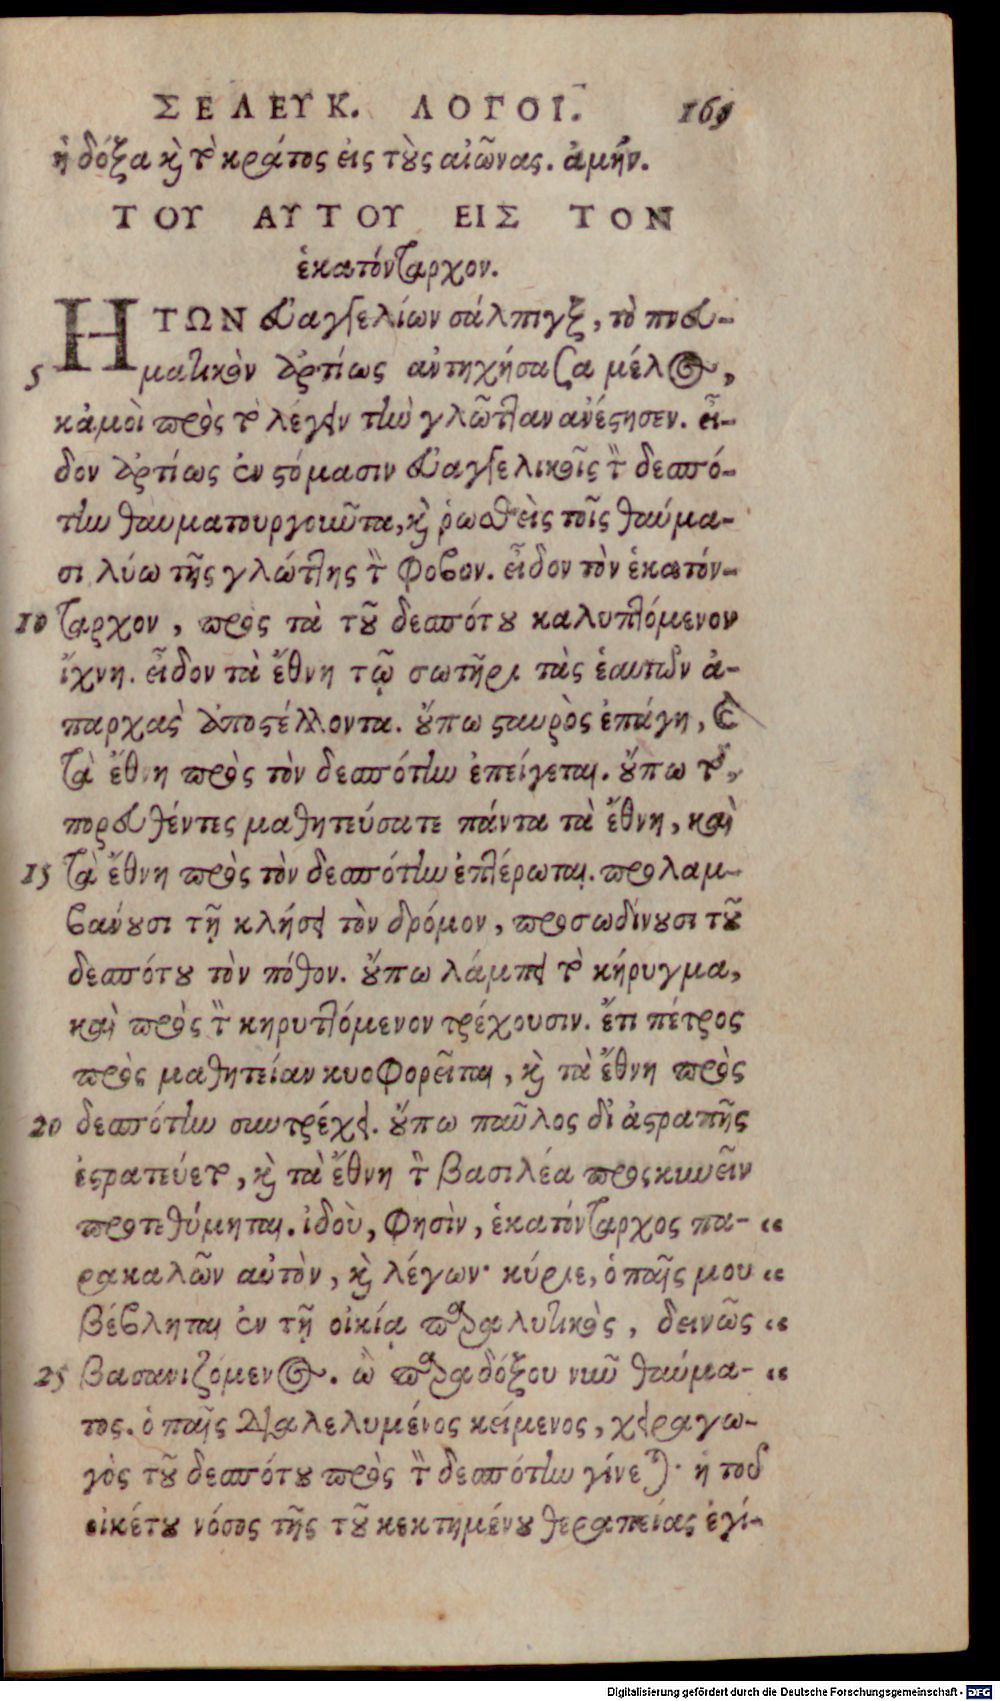 ΣΕΛΕΥΚ. ΛΟΓΟΙ. 169
ἡ δόξα κὶ τὸ κράτος εἰς τοὺς αἰῶνας. ἀμήν.
ΤΟΥ ΑΥΤΟΥ ΕΙΣ ΤΟΝ
ἑκατόνταρχον.
Η ΤΩΝ εὐαγγελίων σάλπιγξ, τὸ πνευ-
5 ματικὸν ἀρτίως ἀντηχήσασα μέλος,
κἀμοὶ πρὸς τὸ λέγειν τὴν γλῶτταν ἀνέστησεν. εἶ-
δον ἀρτίως ἐν στόμασιν εὐαγγελικοῖς τὸν δεσπό-
την θαυματουργοῦντα, κὶ ῥωσθεὶς τοῖς θαύμα-
σι, λύω τῆς γλώττης τὸν φόβον. εἶδον τὸν ἑκατόν-
10 ταρχον, πρὸς τὰ τοῦ δεσπότου καλυπτόμενον
ἴχνη. εἶδον τὰ ἔθνη τῷ σωτῆρι τὰς ἑαυτῶν ἀ-
παρχὰς ἀποστέλλοντα. οὔπω σταυρὸς ἐπάγη, κὶ
τὰ ἔθνη πρὸς τὸν δεσπότην ἐπείγεται. οὔπω τὸ,
πορευθέντες μαθητεύσατε πάντα τὰ ἔθνη, καὶ
15 τὰ ἔθνη πρὸς τὸν δεσπότην ἐπτέρωται. προλαμ-
βάνουσι τῇ κλήσει τὸν δρόμον, προσωδίνουσι τοῦ
δεσπότου τὸν πόθον. οὔπω λάμπει τὸ κήρυγμα,
καὶ πρὸς τὸν κηρυττόμενον τρέχουσιν. ἔτι πέτρος
πρὸς μαθητείαν κυοφορεῖται, κὶ τὰ ἔθνη πρὸς
20 δεσπότην συντρέχει. οὔπω παῦλος δι' ἀστραπῆς
ἐστρατεύετο, κὶ τὰ ἔθνη τὸν βασιλέα προσκυνεῖν
προτεθύμηται. ἰδοὺ, φησὶν, ἑκατόνταρχος πα- “
ρακαλῶν αὐτὸν, κὶ λέγων· κύριε, ὁ παῖς μου “
βέβληται ἐν τῇ οἰκίᾳ παραλυτικὸς, δεινῶς “
25 βασανιζόμενος. ὢ παραδόξου νῦν θαύμα- “
τος. ὁ παῖς παραλελυμένος κείμενος, χειραγω-
γὸς τοῦ δεσπότου πρὸς τὸν δεσπότην γίνεται· ἡ τοῦ
οἰκέτου νόσος τῆς τοῦ κεκτημένου θεραπείας ἐγί-
Digitalisierung gefördert durch die Deutsche Forschungsgemeinschaft - DFG